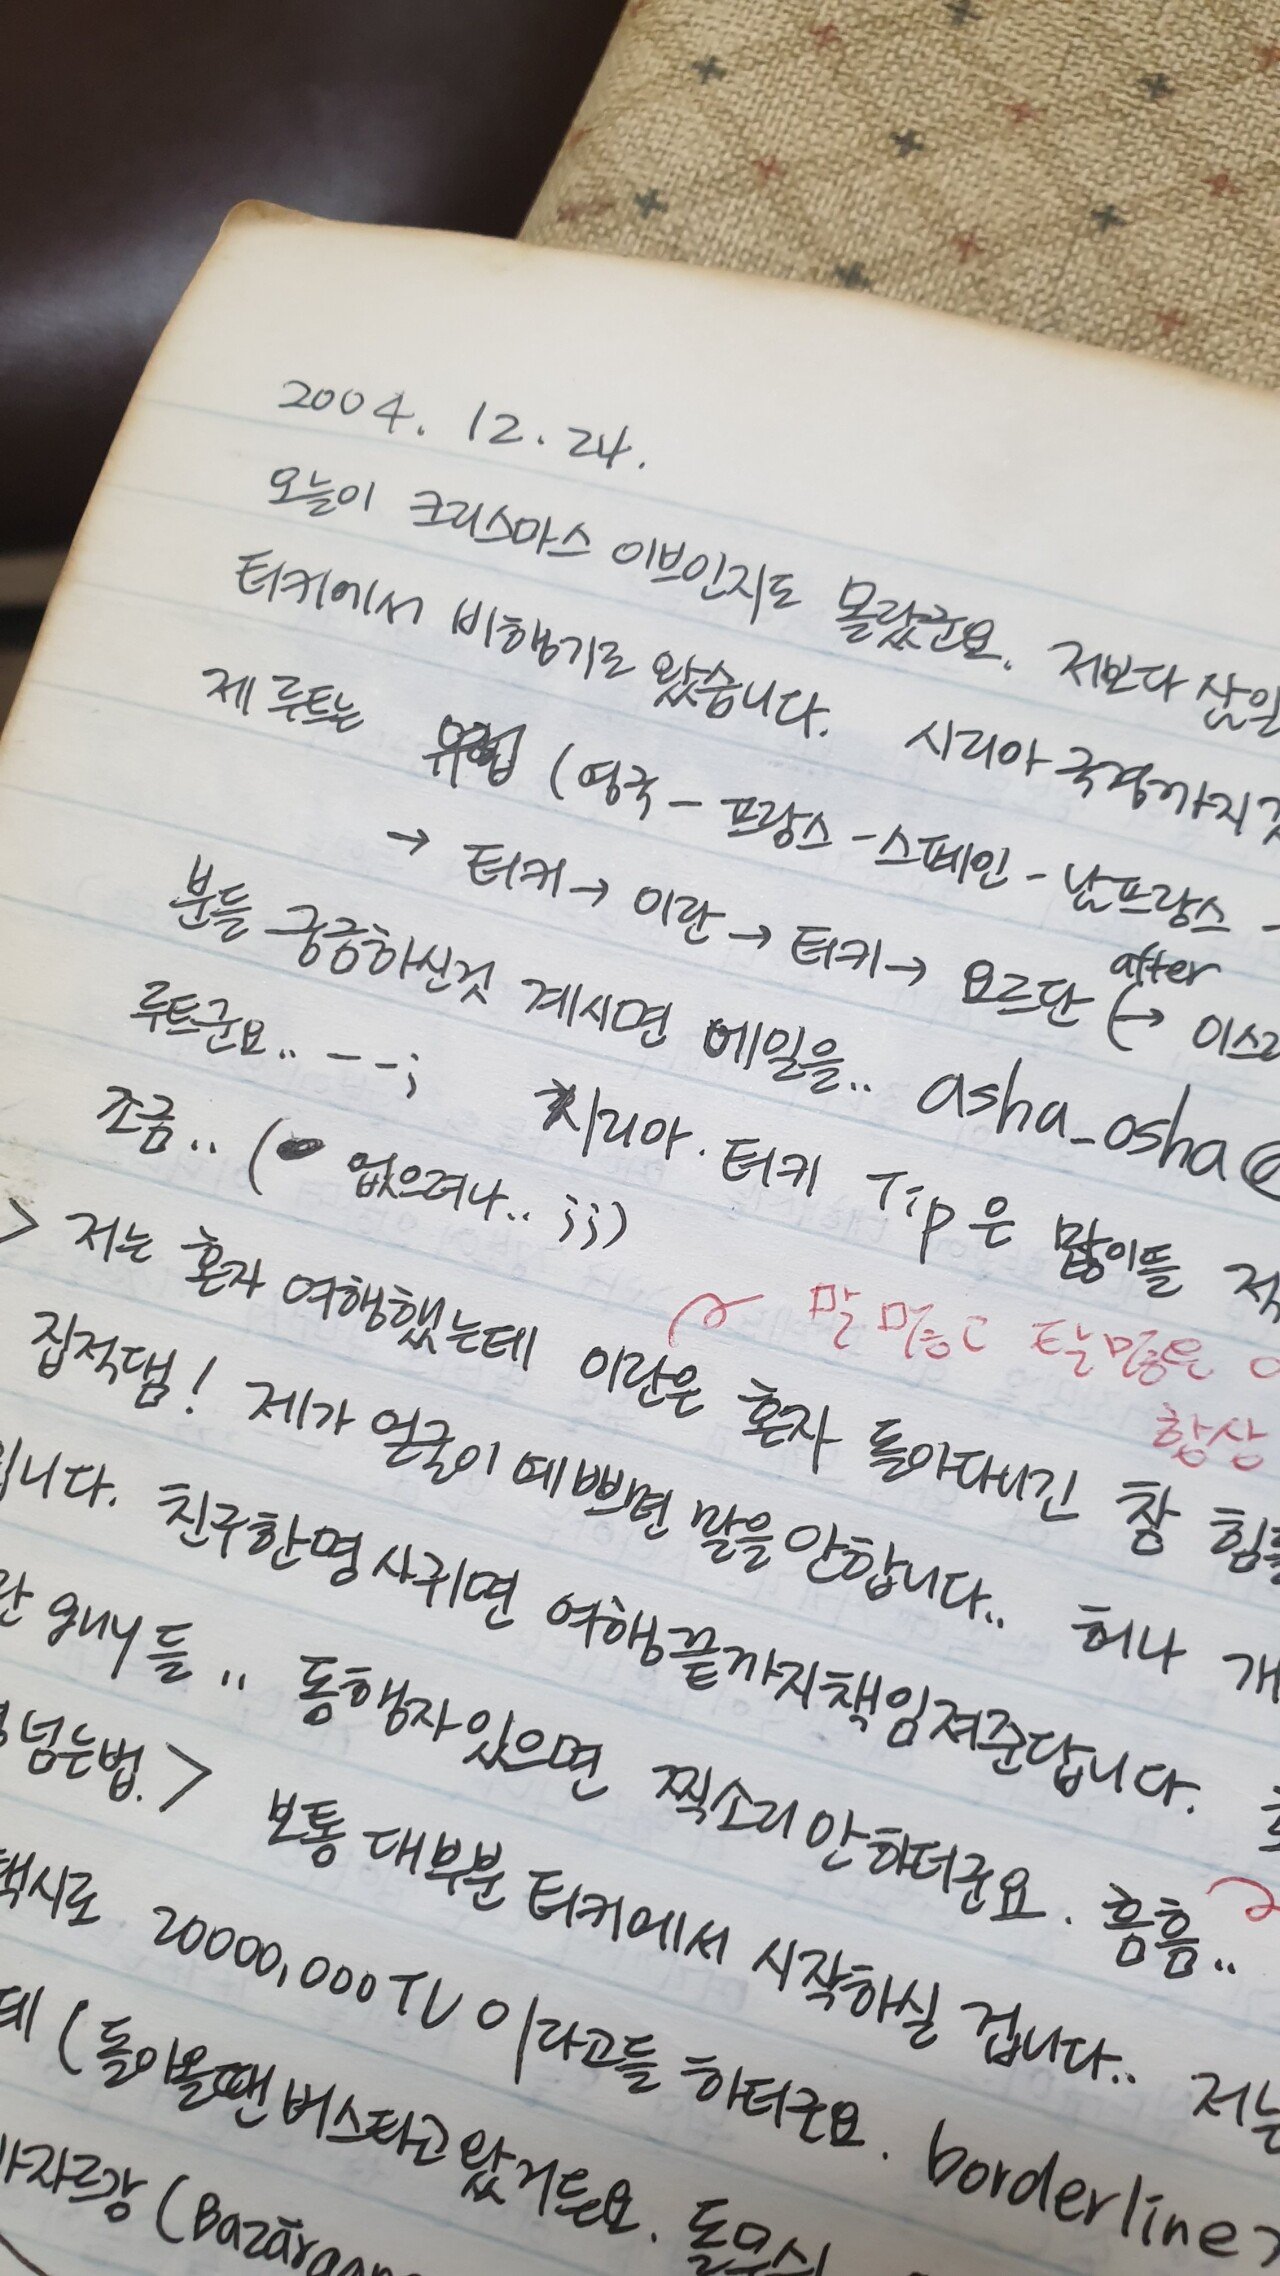 2004. 12. 24.
오늘이 크리스마스 이브인지도 몰랐군요. 저보다 삼일
터키에서 비행기로 왔습니다. 시리아 국경까지
제 루트는 유럽 (영국 - 프랑스 - 스페인 - 남프랑스 -
→ 터키 → 이란 → 터키 → 요르단 (after → 이스라
분들 궁금하신것 계시면 메일을.. asha_osha@
루트군요.. --; 시리아. 터키 Tip은 많이들 적
조금.. ( 없으려나.. ;;)
말 항상
> 저는 혼자 여행했는데 이란은 혼자 돌아다니긴 참 힘들
집적댐! 제가 얼굴이 예쁘면 말을 안합니다.. 허나 개
입니다. 친구한명 사귀면 여행끝까지 책임져준답니다.
란 guy들.. 동행자있으면 찍소리 안하더군요. 흠흠..
넘는법.> 보통 대부분 터키에서 시작하실 겁니다.. 저는
택시로 20000,000 TL 이라고들 하더군요. borderline
데 (돌아올땐 버스타고 왔거든요. 돌무쉬
바자르강 (Bazārgan